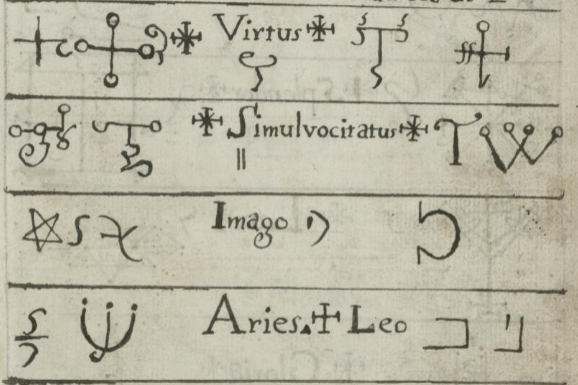 Virtus
Simulvocitatus
Imago
Aries ✢ Leo